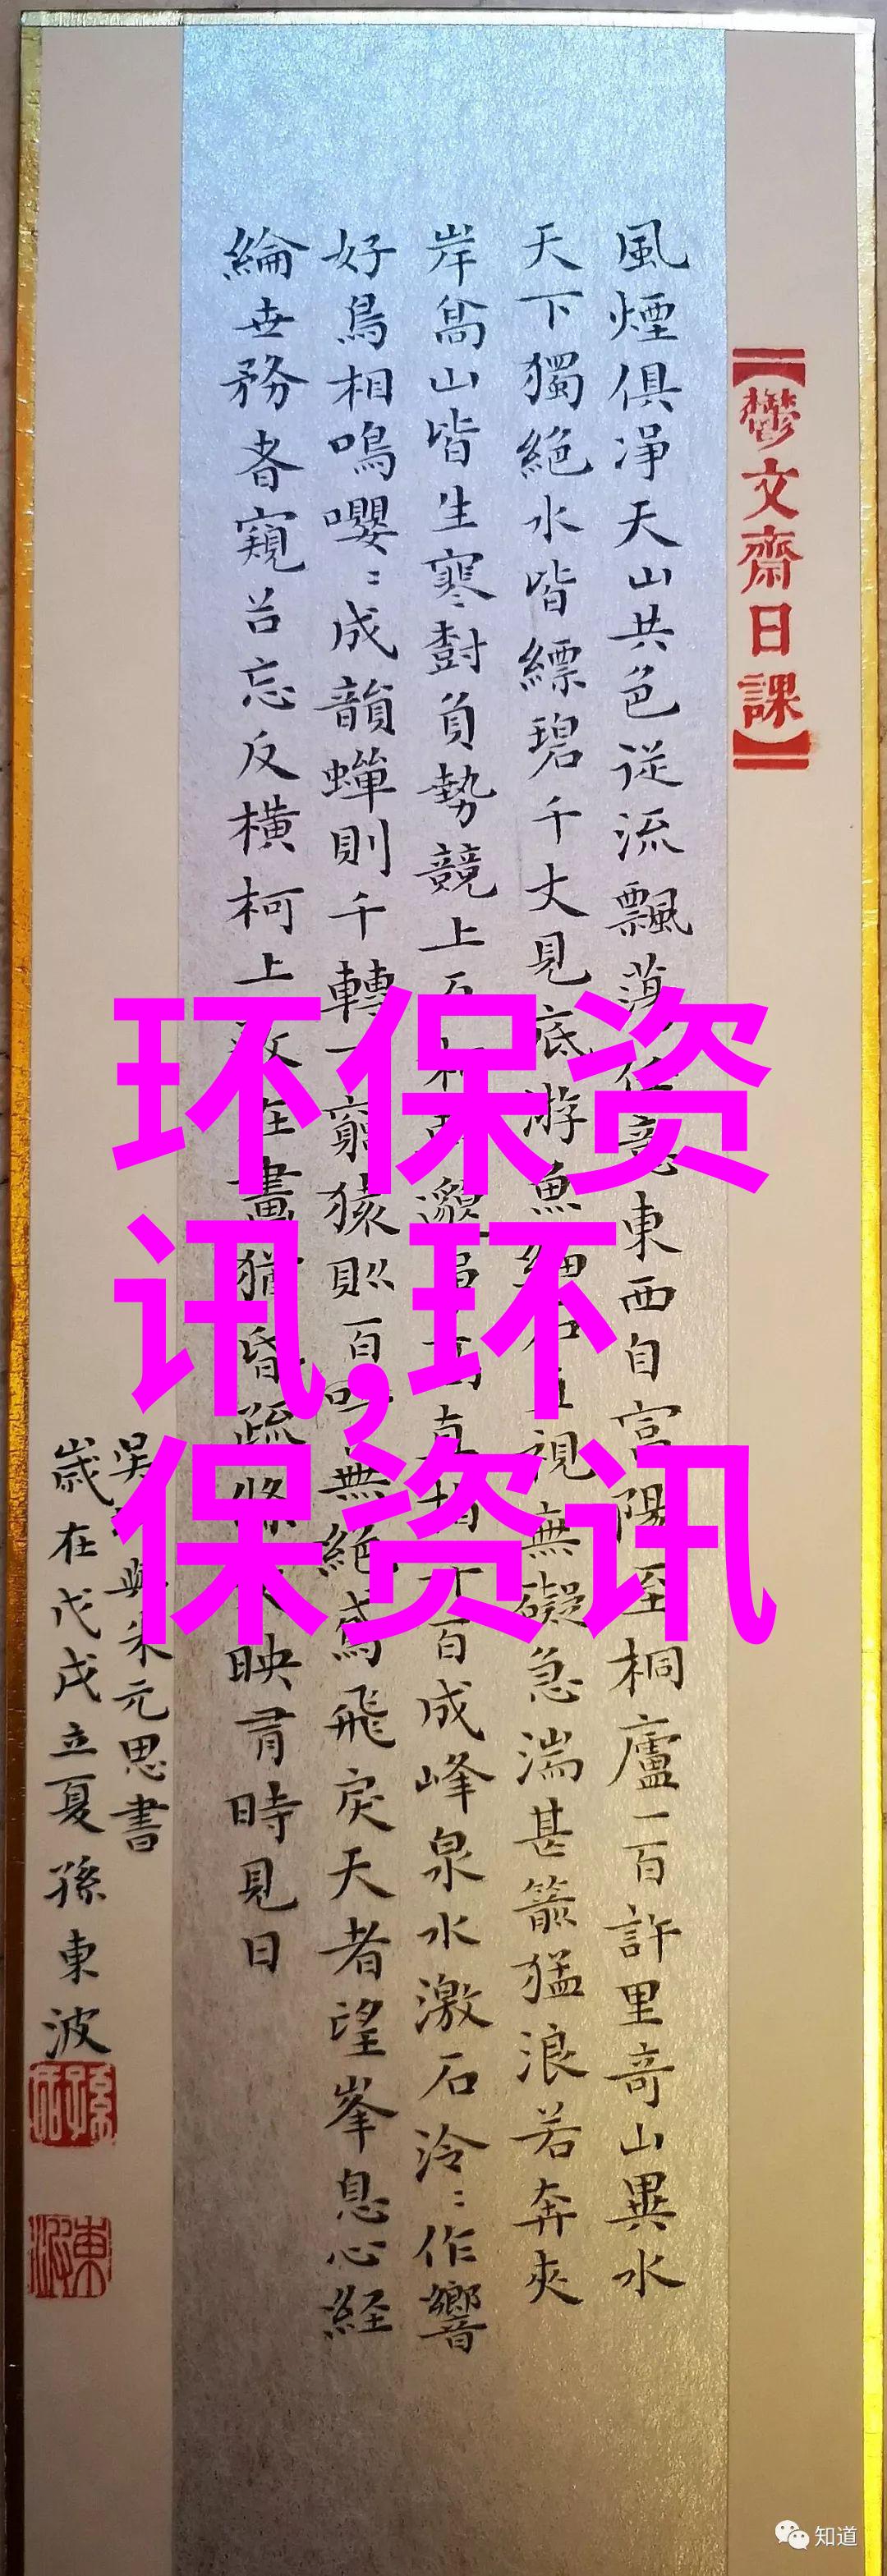 【鬱文齋日課】
風煙俱淨天山共色從流飄蕩任意東西自富陽至桐廬一百許里奇山異水
天下獨絕水皆縹碧千丈見底游魚細石直視無礙急湍甚箭猛浪若奔夾
岸高山皆生寒樹負勢競上互相軒邈爭高直指千百成峰泉水激石泠々作響
好鳥相鳴嚶々成韻蟬則千轉不窮猿則百叫無絕鳶飛戾天者望峯息心経
綸世務者窺谷忘反橫柯上蔽在晝猶昏疏條交映有時見日
吳均與朱元思書
歲在戊戌立夏孫東波
环保资
讯,环
保资讯
知道